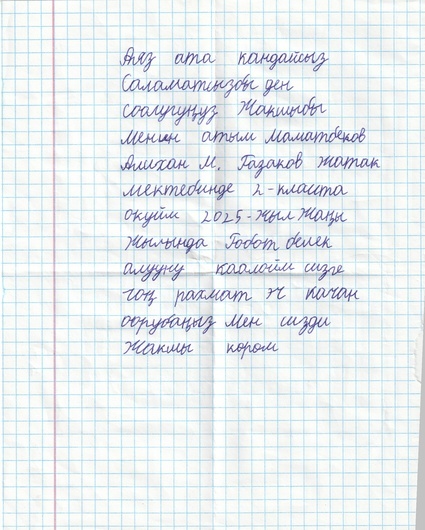 Аяз ата кандайсыз
Саламатсызбы ден
Соолугуңуз Жакшыбы
Менин атым Маматбеков
Алихан М. Газаков жатак
мектебинде 2-класста
окуйм 2025-жыл Жаңы
Жылында Робот белек
алууну каалойм сизге
чоң рахмат эч качан
оорубаңыз Мен сизди
Жакшы кором